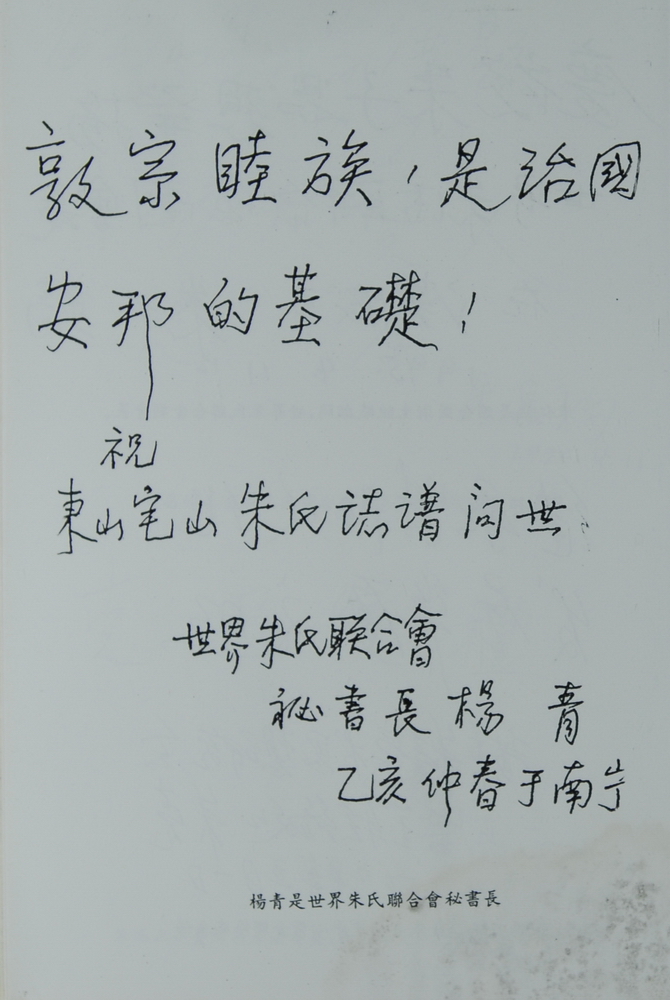 敦宗睦族，是治國
安邦的基礎！
祝
東山宅山朱氏誌譜问世、
世界朱氏联合會
祕書長楊 青
乙亥仲春于南宁
楊青是世界朱氏聯合會秘書長